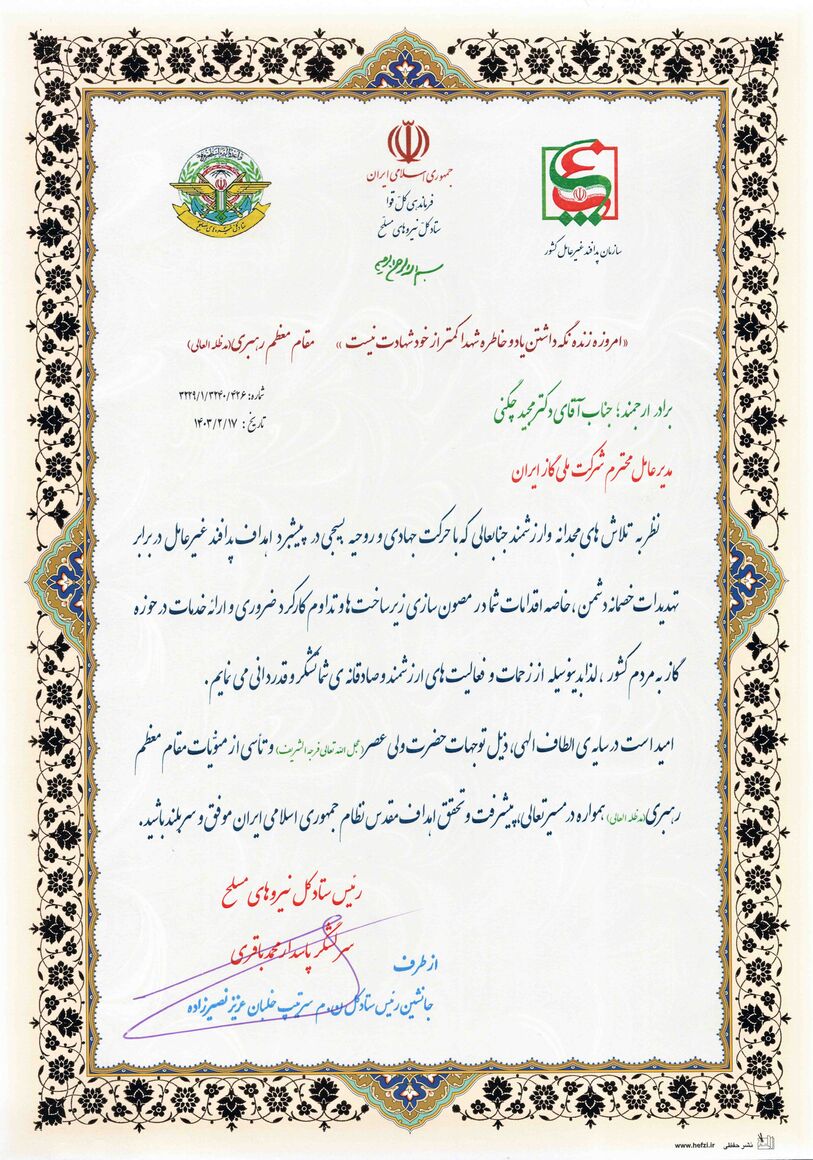 جمهوری اسلامی ایران
فرماندهی کل قوا
ستاد کل نیروهای مسلح
سازمان پدافند غیرعامل کشور
بسم الله الرحمن الرحیم
«امروزه زنده نگه داشتن یاد و خاطره شهدا کمتر از خود شهادت نیست» مقام معظم رهبری (مدظله العالی)
شماره: ۳۲۲۹/۱/۳۲۴۰/۴۲۶
تاریخ: ۱۴۰۳/۲/۱۷
برادر ارجمند؛ جناب آقای دکتر مجید چگنی
مدیرعامل محترم شرکت ملی گاز ایران
نظر به تلاش های مجدانه و ارزشمند جنابعالی که با حرکت جهادی و روحیه بسیجی در پیشبرد اهداف پدافند غیرعامل در برابر
تهدیدات خصمانه دشمن، خاصه اقدامات شما در مصون سازی زیرساخت ها و تداوم کارکرد ضروری و ارائه خدمات در حوزه
گاز به مردم کشور، لذا بدینوسیله از زحمات و فعالیت های ارزشمند و صادقانه ی شما تشکر و قدردانی می نمایم.
امید است در سایه ی الطاف الهی، ذیل توجهات حضرت ولی عصر (عجل الله تعالی فرجه الشریف) و تأسی از منویات مقام معظم
رهبری (مدظله العالی) همواره در مسیر تعالی، پیشرفت و تحقق اهداف مقدس نظام جمهوری اسلامی ایران موفق و سربلند باشید.
رئیس ستاد کل نیروهای مسلح
سرلشگر پاسدار محمد باقری
از طرف
جانشین رئیس ستاد کل ن.م سرتیپ خلبان عزیز نصیرزاده
نشر حفظی www.hefzi.ir